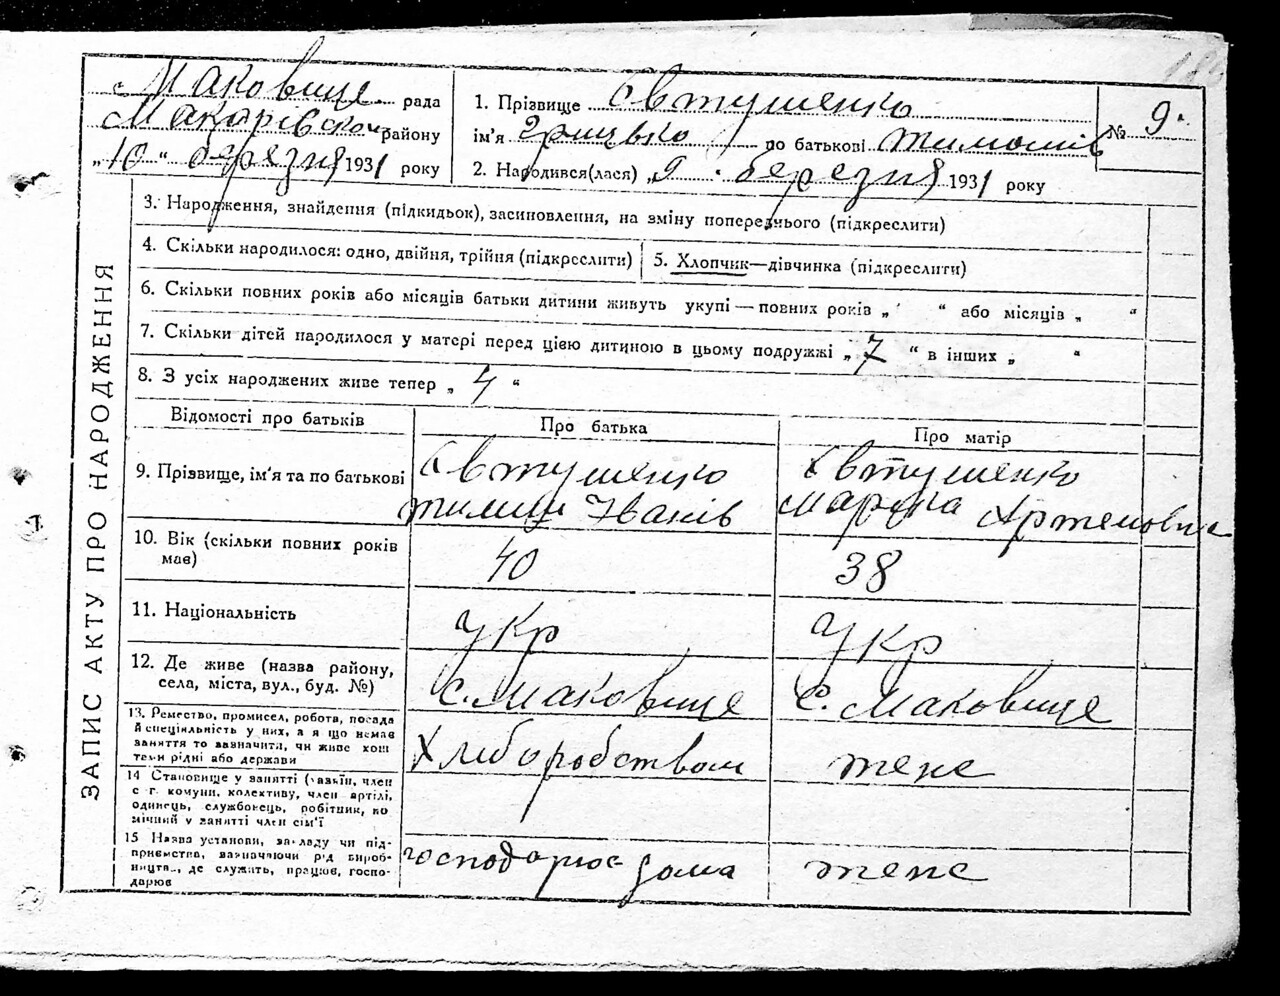 Маковище рада
Макарівського району
„10“ березня 1931 року
1. Прізвище Євтушенко
ім'я Грицько по батькові Тимошів
2. Народився(лася) „9 березня 1931 року
№ 9.
ЗАПИС АКТУ ПРО НАРОДЖЕННЯ
3. Народження, знайдення (підкидьок), засиновлення, на зміну попереднього (підкреслити)
4. Скільки народилося: одно, двійня, трійня (підкреслити)
5. Хлопчик—дівчинка (підкреслити)
6. Скільки повних років або місяців батьки дитини живуть укупі—повних років „ “ або місяців „ “
7. Скільки дітей народилося у матері перед цією дитиною в цьому подружжі „ 7 “ в інших „ “
8. З усіх народжених живе тепер „ 4 “
Відомості про батьків
Про батька
Про матір
9. Прізвище, ім'я та по батькові
Євтушенко
Іванів
Євтушенко
Артемовна
10. Вік (скільки повних років
має)
40
38
11. Національність
укр
укр
12. Де живе (назва району,
села, міста, вул., буд. №)
с. Маковище
с. Маковище
13. Ремество, промисел, робота, посада
й спеціяльність у них, а я що немає
заняття то зазначити, чи живе кош
тами рідні або держави
Хліборобством
теже
14 Становище у занятті (хазяїн, член
с г. комуни, колективу, член артілі,
одинець, службовець, робітник, по
мічний у занятті член сім'ї
15 Назва установи, закладу чи під-
приємства, зазначаючи рід вироб-
ництва, де служить, працює, госпо-
дарює
господарює дома
теже